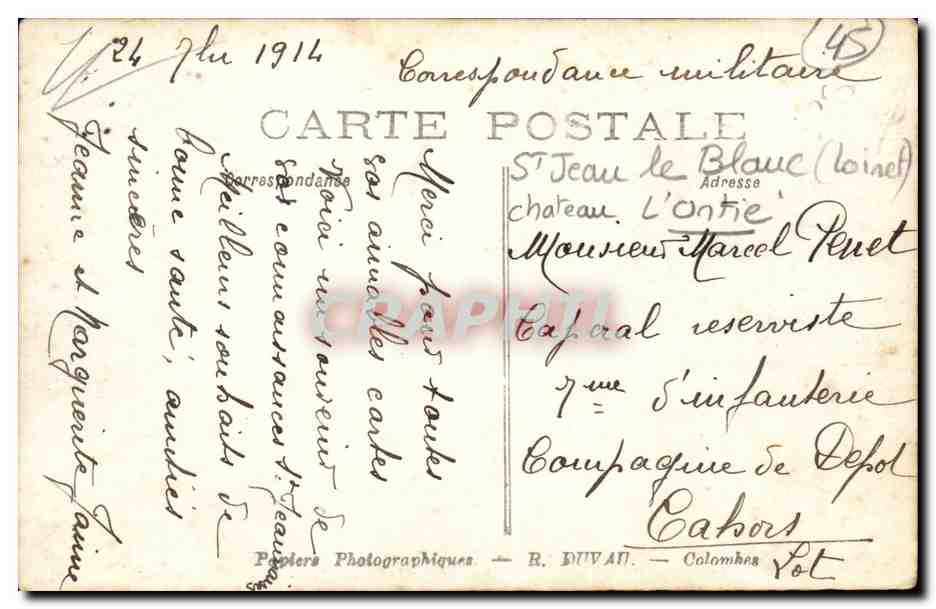 24 7bre 1914
45
Correspondance militaire
CARTE POSTALE
Correspondance
Adresse
St Jean le Blanc (Loiret)
chateau L'Ontie
Monsieur Marcel Penet
Caporal reserviste
7me d'infanterie
Compagnie de Depot
Cahors
Lot
Merci pour toutes
vos aimables cartes
Voici un souvenir de
vos connaissances St Jeannaises
Meilleurs souhaits de
bonne santé, amitiés
sincères
Jeanne et Marguerite Janine
CRAPHIL
Papiers Photographiques — R. DUVAU. — Colombes